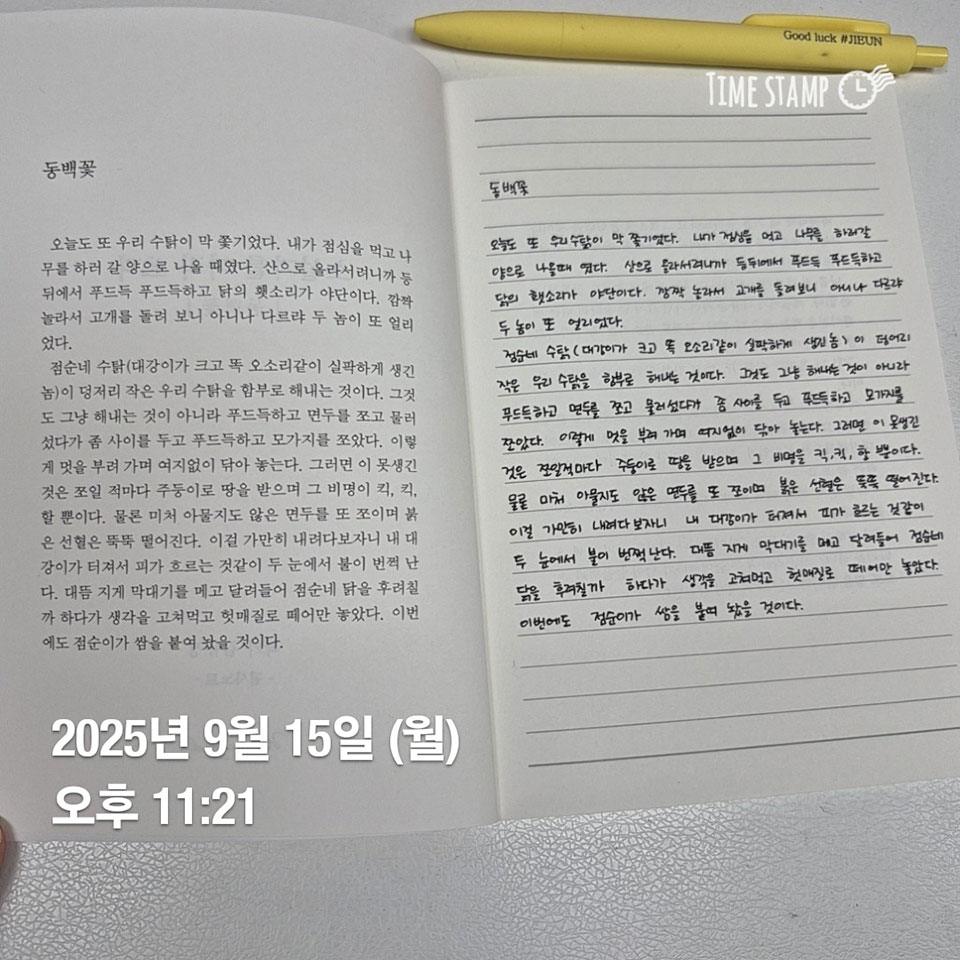 Good luck #JIEUN
TIME STAMP
동백꽃
오늘도 또 우리 수탉이 막 쫓기었다. 내가 점심을 먹고 나
무를 하러 갈 양으로 나올 때였다. 산으로 올라서려니까 등
뒤에서 푸드득 푸드득하고 닭의 횃소리가 야단이다. 깜짝
놀라서 고개를 돌려 보니 아니나 다르랴 두 놈이 또 얼리
었다.
점순네 수탉(대강이가 크고 똑 오소리같이 실팍하게 생긴
놈)이 덩저리 작은 우리 수탉을 함부로 해내는 것이다. 그것
도 그냥 해내는 것이 아니라 푸드득하고 면두를 쪼고 물러
섰다가 좀 사이를 두고 푸드득하고 모가지를 쪼았다. 이렇
게 멋을 부려 가며 여지없이 닦아 놓는다. 그러면 이 못생긴
것은 쪼일 적마다 주둥이로 땅을 받으며 그 비명이 킥, 킥,
할 뿐이다. 물론 미처 아물지도 않은 면두를 또 쪼이며 붉
은 선혈은 뚝뚝 떨어진다. 이걸 가만히 내려다보자니 내 대
강이가 터져서 피가 흐르는 것같이 두 눈에서 불이 번쩍 난
다. 대뜸 지게 막대기를 메고 달려들어 점순네 닭을 후려칠
까 하다가 생각을 고쳐먹고 헛매질로 떼어만 놓았다. 이번
에도 점순이가 쌈을 붙여 놨을 것이다.
동백꽃
오늘도 또 우리수탉이 막 쫓기었다. 내가 점심을 먹고 나무를 하러갈
양으로 나올때 였다. 산으로 올라서려니까 등뒤에서 푸드득 푸드득하고
닭의 횃소리가 야단이다. 깜짝 놀라서 고개를 돌려보니 아니나 다르랴
두 놈이 또 얼리었다.
점순네 수탉(대강이가 크고 똑 오소리같이 실팍하게 생긴놈)이 덩어리
작은 우리 수탉을 함부로 해내는 것이다. 그것도 그냥 해내는것이 아니라
푸드득하고 면두를 쪼고 물러섰다가 좀 사이를 두고 푸드득하고 모가지를
쪼았다. 이렇게 멋을 부려 가며 여지없이 닦아 놓는다. 그러면 이 못생긴
것은 쪼일적마다 주둥이로 땅을 받으며 그 비명을 킥,킥, 할 뿐이다.
물론 미처 아물지도 않은 면두를 또 쪼이며 붉은 선혈은 뚝뚝 떨어진다.
이걸 가만히 내려다보자니 내 대강이가 터져서 피가 흐르는 것같이
두 눈에서 불이 번쩍난다. 대뜸 지게 막대기를 메고 달려들어 점순네
닭을 후려칠까 하다가 생각을 고쳐먹고 헛매질로 떼어만 놓았다.
이번에도 점순이가 쌈을 붙여 놨을 것이다.
2025년 9월 15일 (월)
오후 11:21